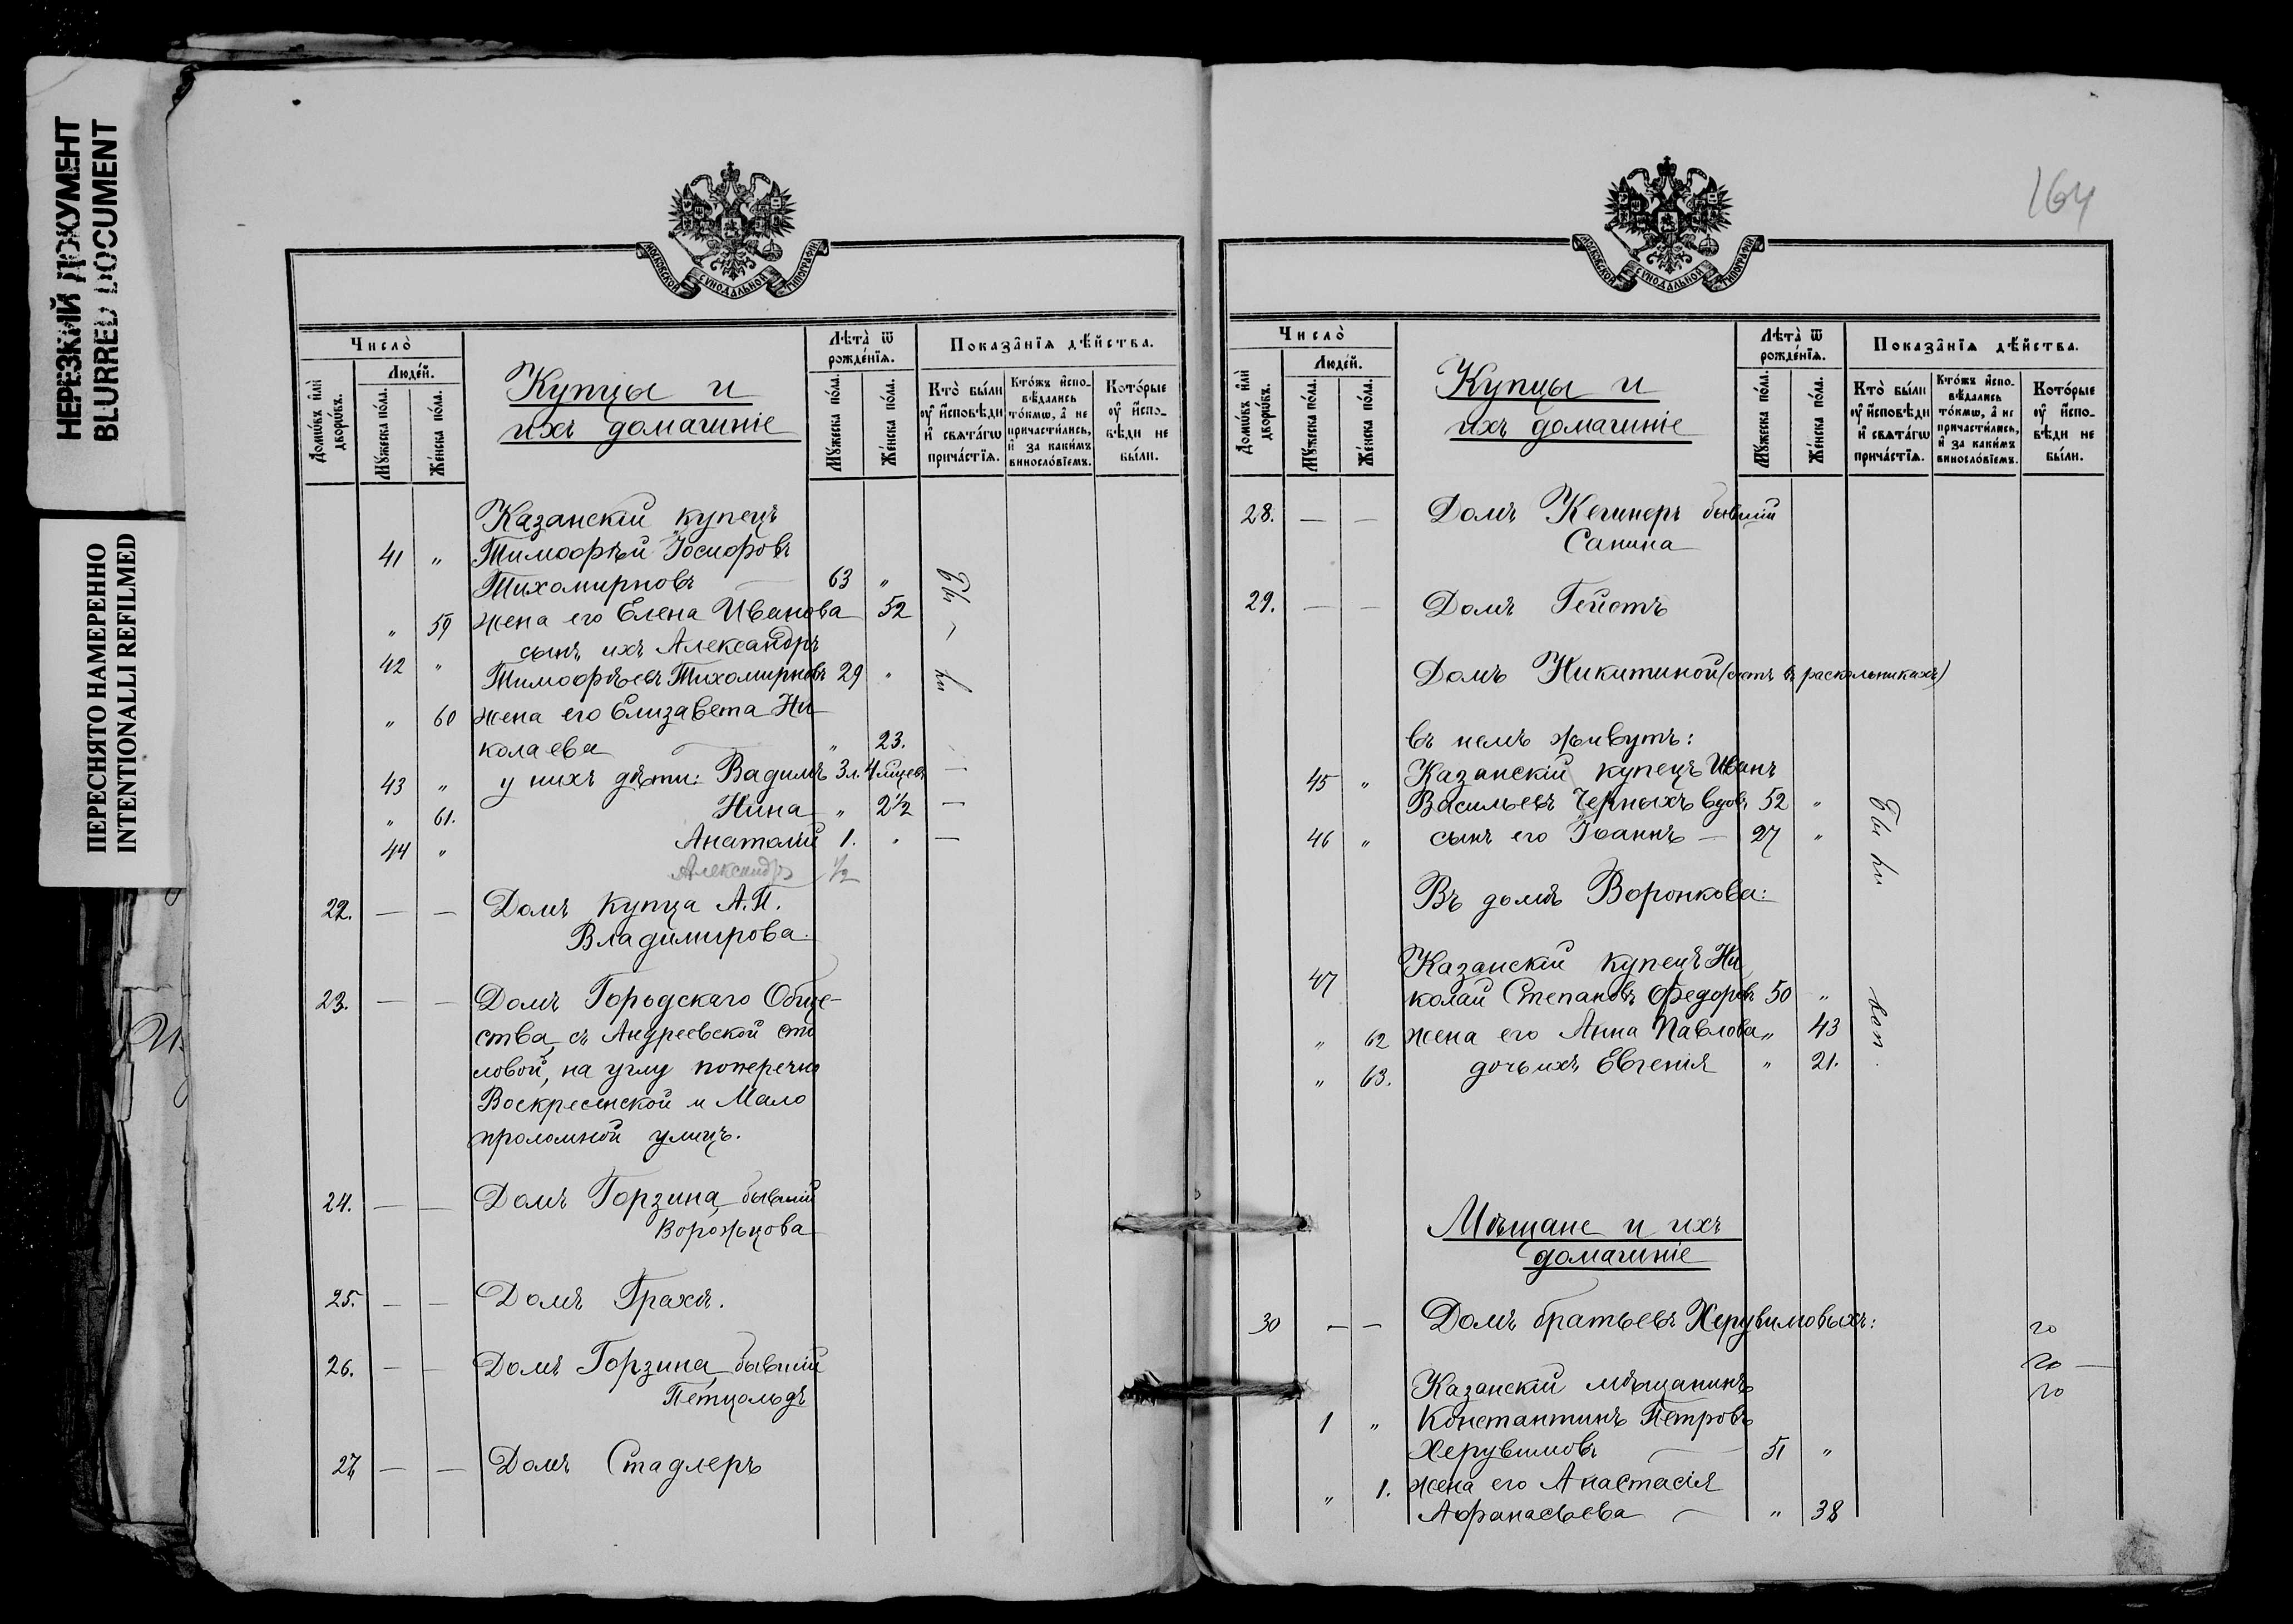 НЕРЕЗКИЙ ДОКУМЕНТ
BLURRED DOCUMENT
ПЕРЕСНЯТО НАМЕРЕННО
INTENTIONALLI REFILMED
МОСКОВСКОЙ СѴНОДАЛЬНОЙ ТИПОГРАФІИ
Число̀
Людей.
Домѡ́въ и҆лѝ дворѡ́въ.
Мꙋ́жеска по́ла.
Же́нска по́ла.
Купцы и
ихъ домашніе
Лѣта̀ ѿ рожде́нїѧ.
Мꙋ́жеска по́ла.
Же́нска по́ла.
Показа̑нїѧ дѣ́йства.
Кто̀ бы́ли ᲂу҆ и҆сповѣди и҆ свѧта́гѡ прича́стїѧ.
Кто́жъ и҆спо-вѣ́дались то́кмѡ, а҆ не причасти́лись, и҆ за каки́мъ винословіемъ.
Кото́рые ᲂу҆ и҆спо-вѣди не бы́ли.
Казанскій купецъ
41 " Тимофѣй Іосифовъ
Тихомирновъ 63 "
" 59 жена его Елена Иванова 52
сынъ ихъ Александръ
42 " Тимофѣевъ Тихомирновъ 29 "
" 60 жена его Елизавета Ни
колаева " 23.
43 " у нихъ дѣти: Вадимъ 3 л. 4 мѣсяц.
" 61. Нина " 2 1/2
44 " Анатолій 1. "
Александръ 1/2
22. — — Домъ купца А. П.
Владимирова.
23. — — Домъ Городскаго Обще-
ства, съ Андреевской сто
ловой, на углу поперечно
Воскресенской и Мало
проломной улицъ.
24. — — Домъ Горзина, бывшій
Ворожцова
25. — — Домъ Грахе.
26. — — Домъ Горзина, бывшій
Петцольдъ
27. — — Домъ Стадлеръ
164
МОСКОВСКОЙ СѴНОДАЛЬНОЙ ТИПОГРАФІИ
Число̀
Людей.
Домѡ́въ и҆лѝ дворѡ́въ.
Мꙋ́жеска по́ла.
Же́нска по́ла.
Купцы и
ихъ домашніе
Лѣта̀ ѿ рожде́нїѧ.
Мꙋ́жеска по́ла.
Же́нска по́ла.
Показа̑нїѧ дѣ́йства.
Кто̀ бы́ли ᲂу҆ и҆сповѣди и҆ свѧта́гѡ прича́стїѧ.
Кто́жъ и҆спо-вѣ́дались то́кмѡ, а҆ не причасти́лись, и҆ за каки́мъ винословіемъ.
Кото́рые ᲂу҆ и҆спо-вѣди не бы́ли.
28. — — Домъ Кешнеръ бывшій
Санина
29. — — Домъ Гейстъ
Домъ Никитиной (счит. въ раскольникахъ)
въ немъ живутъ:
45 " Казанскій купецъ Иванъ
Васильевъ Черныхъ вдов. 52 "
46 " сынъ его Іоаннъ — 27 "
Въ домѣ Воронкова:
47 Казанскій купецъ Ни
колай Степановъ Федоровъ 50 "
" 62 жена его Анна Павлова " 43
" 63. дочь ихъ Евгенія " 21.
Мѣщане и ихъ
домашніе
30 — — Домъ братьевъ Херувимовыхъ:
Казанскій мѣщанинъ
1 " Константинъ Петровъ
Херувимовъ 51 "
" 1. жена его Анастасія
Афанасьева " 38